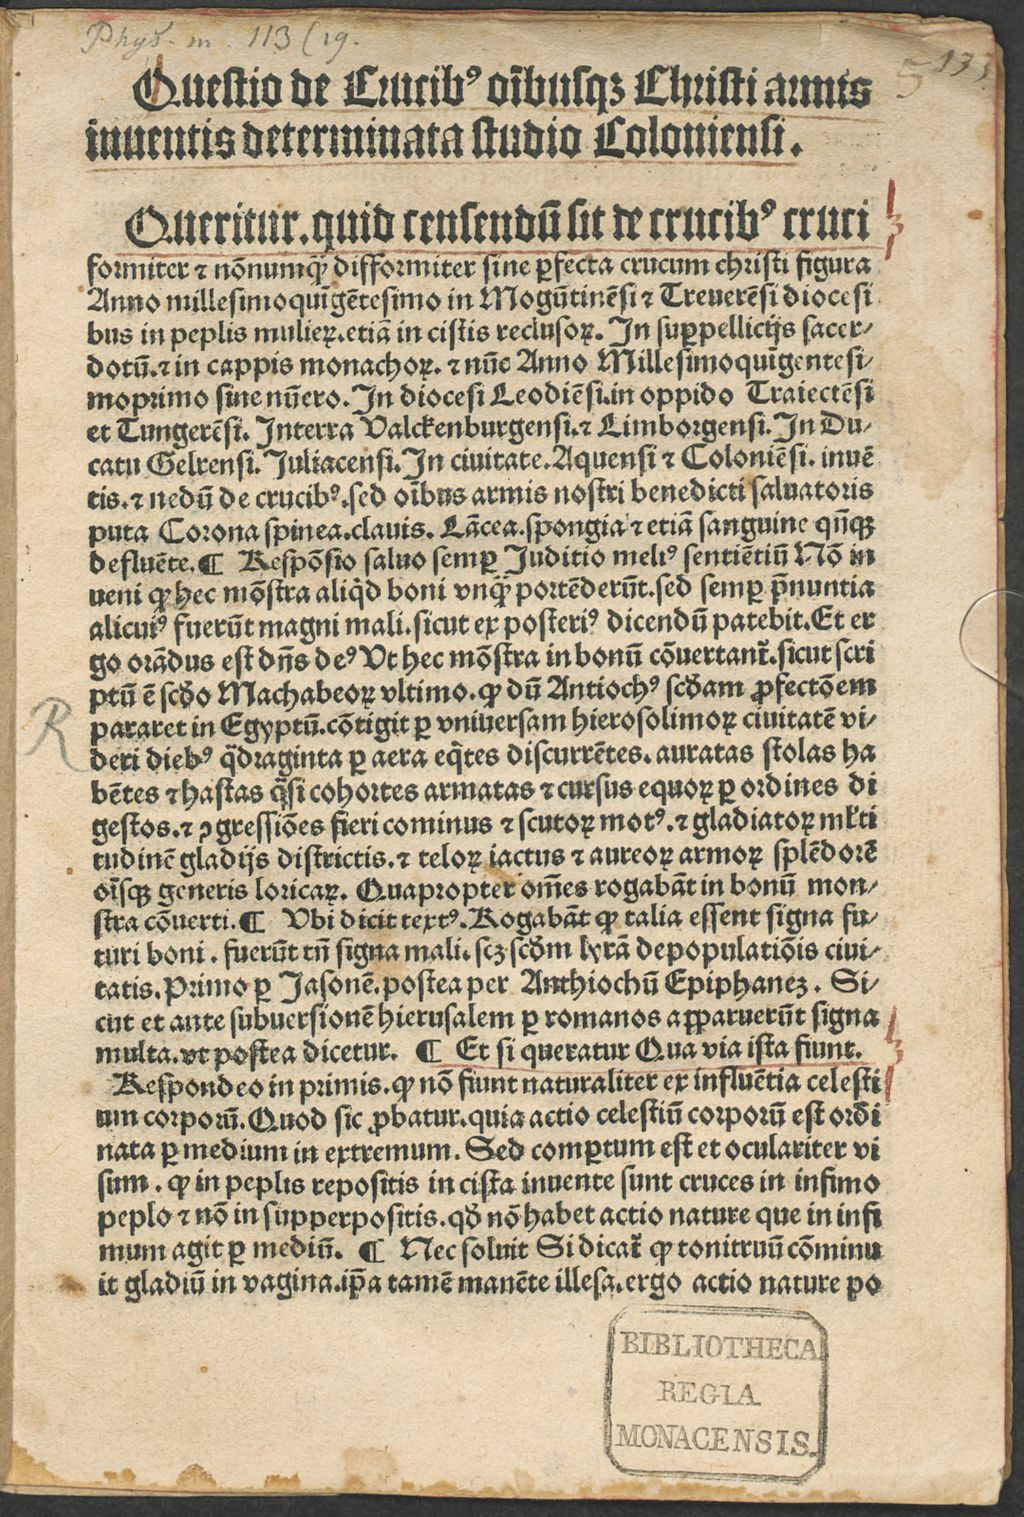 Phys. m. 113 (19.
5 133
Questio de Crucibꝰ oı̄busqꝫ Christi armis
inuentis determinata studio Coloniensi.
Queritur. quid censendū sit de crucibꝰ cruci
formiter ⁊ nōnumqᷓ difformiter sine ꝑfecta crucum christi figura
Anno millesimoquīgētesimo in Mogūtinēsi ⁊ Treuerēsi diocesi
bus in peplis mulieꝝ. etiā in cistis reclusoꝝ. In suꝑpellicijs sacer⸗
dotū. ⁊ in cappis monachoꝝ. ⁊ nūc Anno Millesimoquīgentesi⸗
moprimo sine nūero. In diocesi Leodiēsi. in oppido Traiectēsi
et Tungerēsi. Interra Valckenburgensi. ⁊ Limborgensi. In Du⸗
catu Gelrensi. Juliacensi. In ciuitate. Aquensi ⁊ Coloniēsi. inuē
tis. ⁊ nedū de crucibꝰ. sed oı̄bus armis nostri benedicti saluatoris
puta Corona spinea. clauis. Lācea. spongia ⁊ etiā sanguine qn̄qꝫ
defluēte. ¶ Respōsio saluo semꝑ Juditio meliꝰ sentiētiū Nō in
ueni ꝙ hec mōstra aliqͥd boni vnqᷓ portēderūt. sed semꝑ p̄nuntia
alicuiꝰ fuerūt magni mali. sicut ex posteriꝰ dicendū patebit. Et er
go orādus est dn̄s deꝰ Vt hec mōstra in bonū cōuertant᷑. sicut scri
ptū ē scd̄o Machabeoꝝ vltimo. ꝙ dū Antiochꝰ scd̄am ꝓfectōem
pararet in Egyptū. cōtigit ꝑ vniuersam hierosolimoꝝ ciuitatē vi⸗
deri diebꝰ qᷓdraginta ꝑ aera eqͥtes discurrētes. auratas stolas ha
bētes ⁊ hastas qᷓsi cohortes armatas ⁊ cursus equoꝝ ꝑ ordines di
gestos. ⁊ ꝯgressiōes fieri cominus ⁊ scutoꝝ motꝰ. ⁊ gladiatoꝝ ml̄ti
tudinē gladijs districtis. ⁊ teloꝝ iactus ⁊ aureoꝝ armoꝝ splēdorē
oı̄sqꝫ generis loricaꝝ. Quapropter om̄es rogabāt in bonū mon⸗
stra cōuerti. ¶ Vbi dicit textꝰ. Rogabāt ꝙ talia essent signa fu⸗
turi boni. fuerūt tn̄ signa mali. scꝫ scd̄m lyrā depopulatiōis ciui⸗
tatis. Primo ꝑ Jasonē. postea per Anthiochū Epiphanez. Si⸗
cut et ante subuersionē hierusalem ꝑ romanos apꝑaruerūt signa
multa. vt postea dicetur. ¶ Et si queratur Qua via ista fiunt.
Respondeo in primis. ꝙ nō fiunt naturaliter ex influētia celesti
um corpoꝝ̄. Quod sic ꝓbatur. quia actio celestiū corporū est ordi
nata ꝑ medium in extremum. Sed comꝑtum est et oculariter vi
sum. ꝙ in peplis repositis in cista inuente sunt cruces in infimo
peplo ⁊ nō in supperpositis. qd̄ nō habet actio nature que in infi
mum agit ꝑ mediū. ¶ Nec soluit Si dicat᷑ ꝙ tonitruū cōminu
it gladiū in vagina. ip̄a tamē manēte illesa. ergo actio nature po
R
BIBLIOTHECA
REGIA
MONACENSIS.